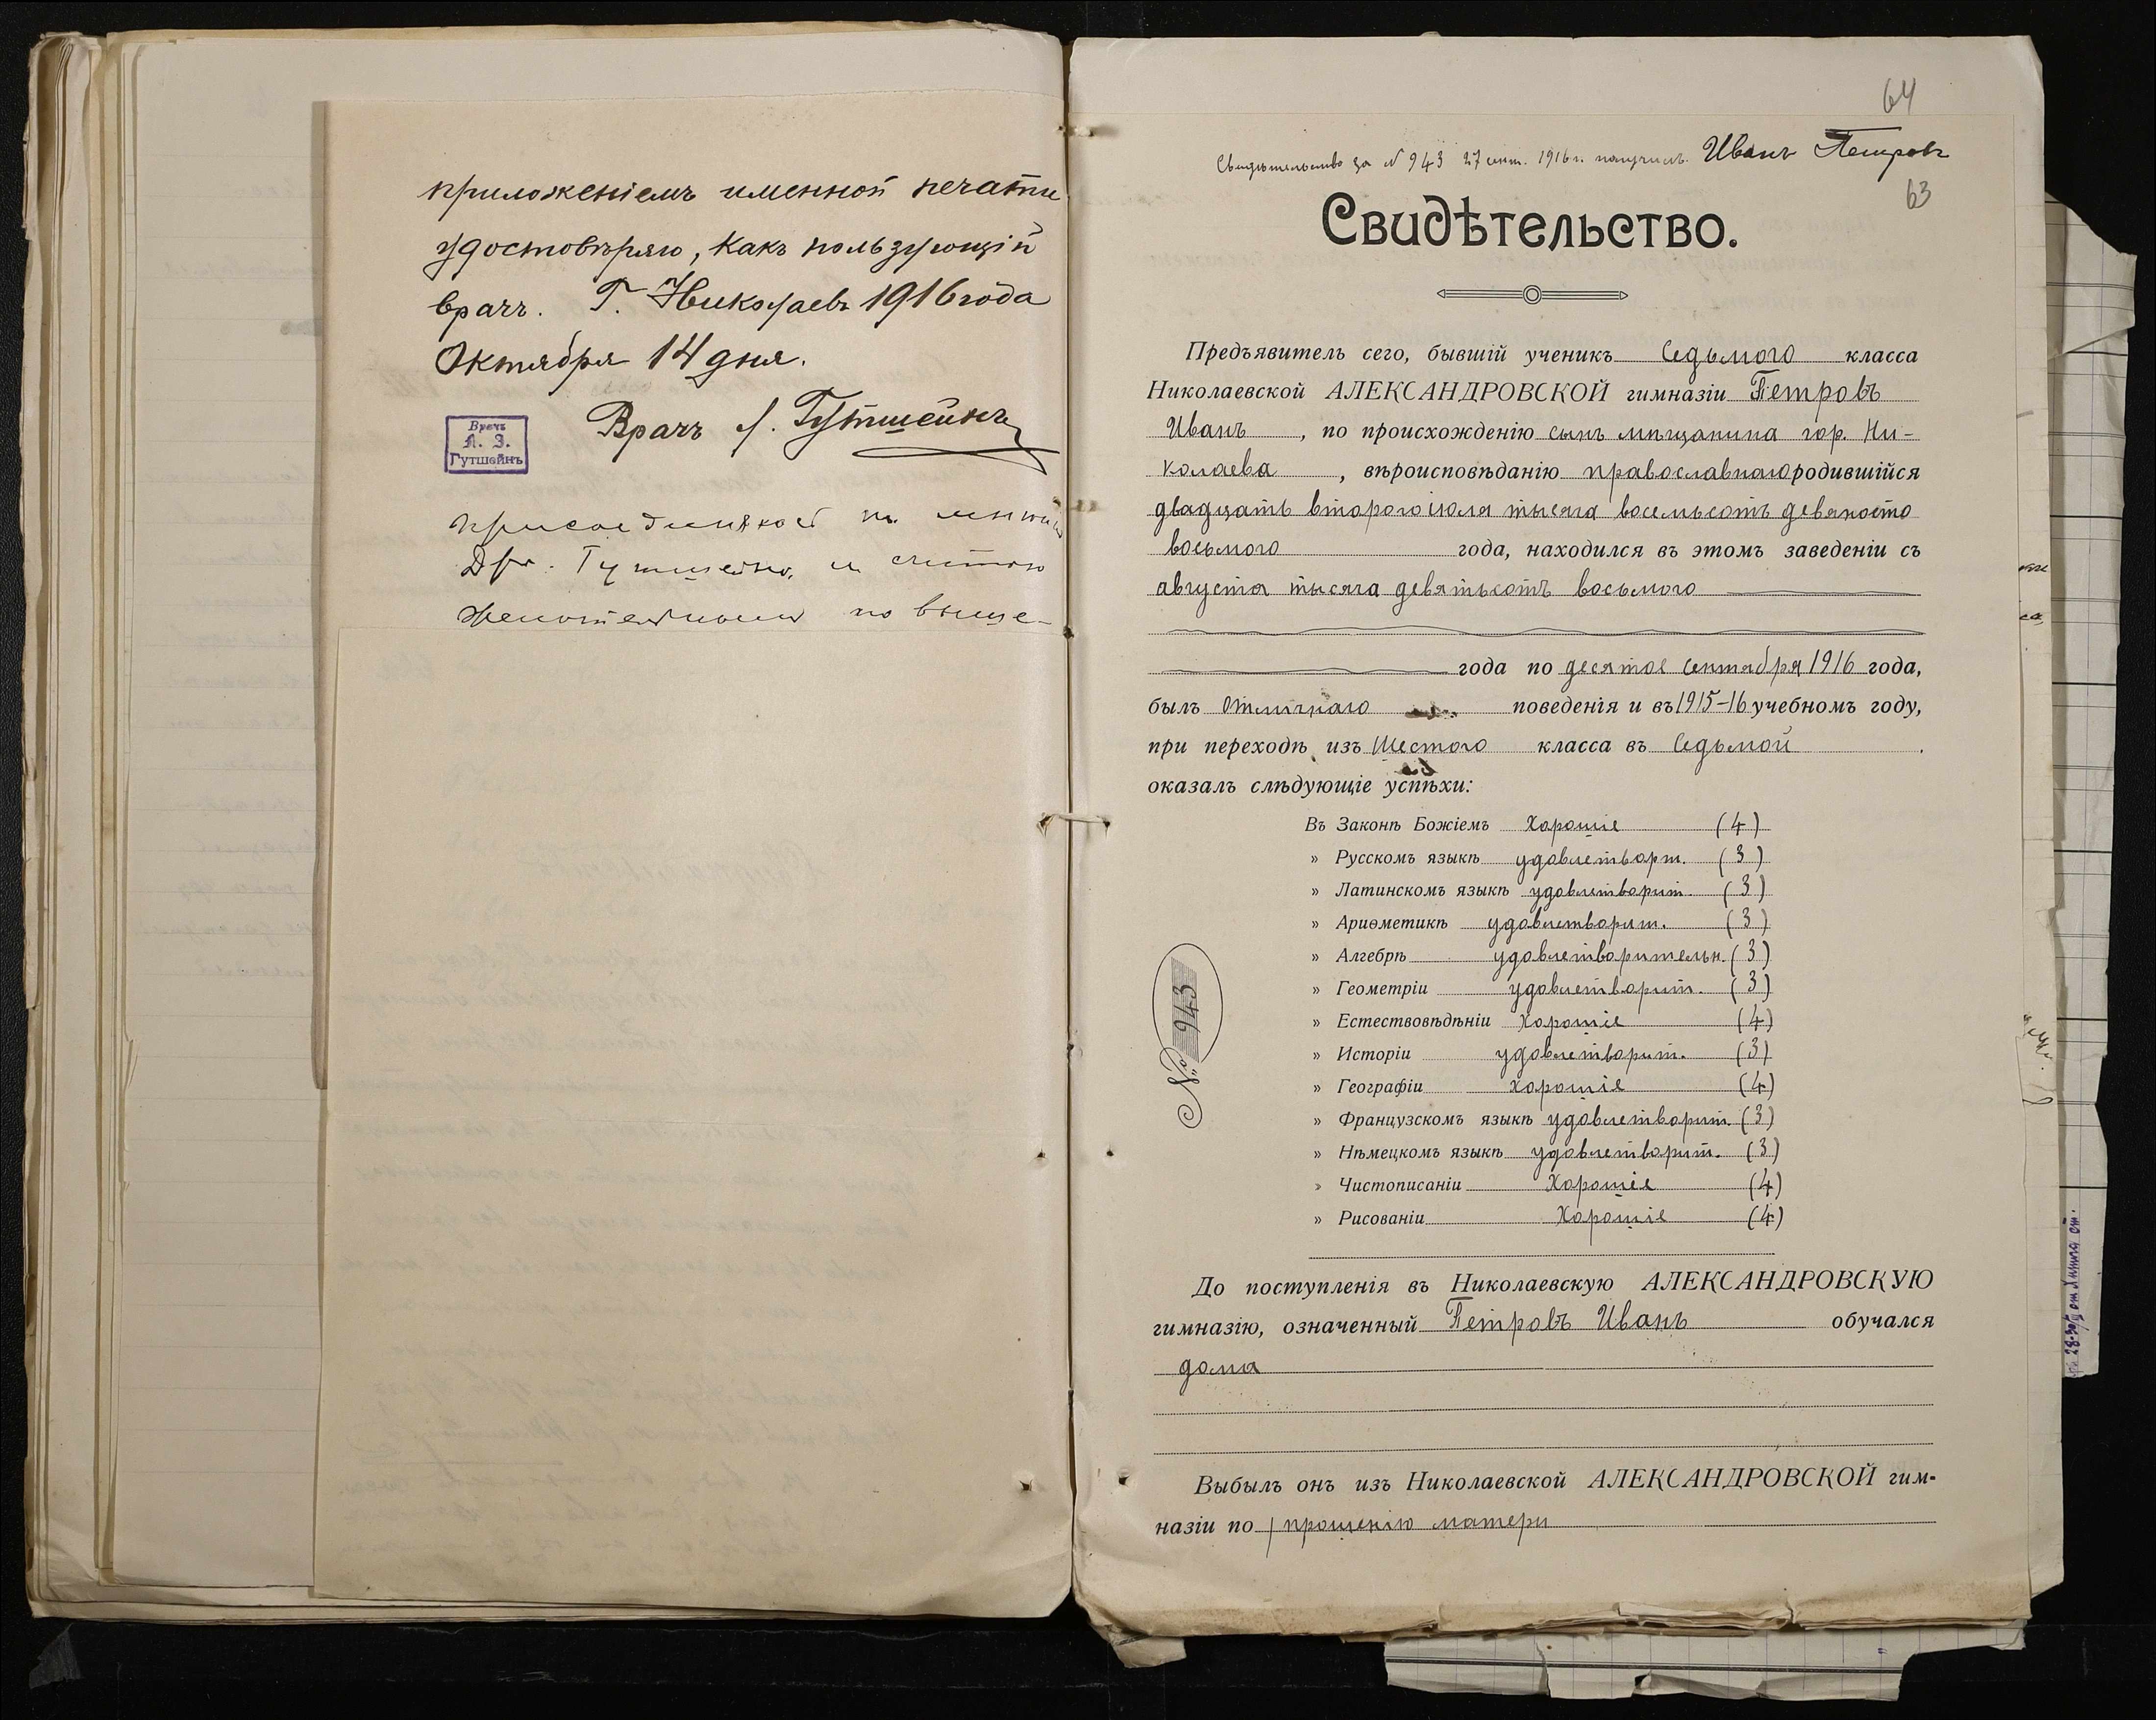 приложеніемъ именной печати
удостовѣряю, какъ пользующій
врачъ. Г. Николаевъ 1916 года
Октября 14 дня.
Врачъ Л. Гутшейнъ
Врачъ
Л. З.
Гутшейнъ
къ
Д-ра Гутшейна, и считаю
по выше-
64
Свидѣтельство за № 943 27 сент. 1916 г. получилъ. Иванъ Петровъ
63
Свидѣтельство.
Предъявитель сего, бывшій ученикъ седьмого класса
Николаевской АЛЕКСАНДРОВСКОЙ гимназіи Петровъ
Иванъ, по происхожденію сынъ мѣщанина гор. Ни-
колаева, вѣроисповѣданію православнаго родившійся
двадцать второго іюля тысяча восемьсотъ девяносто
восьмого года, находился въ этомъ заведеніи съ
августа тысяча девятьсотъ восьмого
года по десятое сентября 1916 года,
былъ отличнаго поведенія и въ 1915-16 учебномъ году,
при переходѣ изъ шестого класса въ седьмой
оказалъ слѣдующіе успѣхи:
Въ Законѣ Божіемъ хорошіе (4)
» Русскомъ языкѣ удовлетворит. (3)
» Латинскомъ языкѣ удовлетворит. (3)
» Ариѳметикѣ удовлетворит. (3)
» Алгебрѣ удовлетворительн. (3)
» Геометріи удовлетворит. (3)
» Естествовѣдѣніи хорошіе (4)
» Исторіи удовлетворит. (3)
» Географіи хорошіе (4)
» Французскомъ языкѣ удовлетворит. (3)
» Нѣмецкомъ языкѣ удовлетворит. (3)
» Чистописаніи хорошіе (4)
» Рисованіи хорошіе (4)
№ 943
До поступленія въ Николаевскую АЛЕКСАНДРОВСКУЮ
гимназію, означенный Петровъ Иванъ обучался
дома
Выбылъ онъ изъ Николаевской АЛЕКСАНДРОВСКОЙ гим-
назіи по прошенію матери